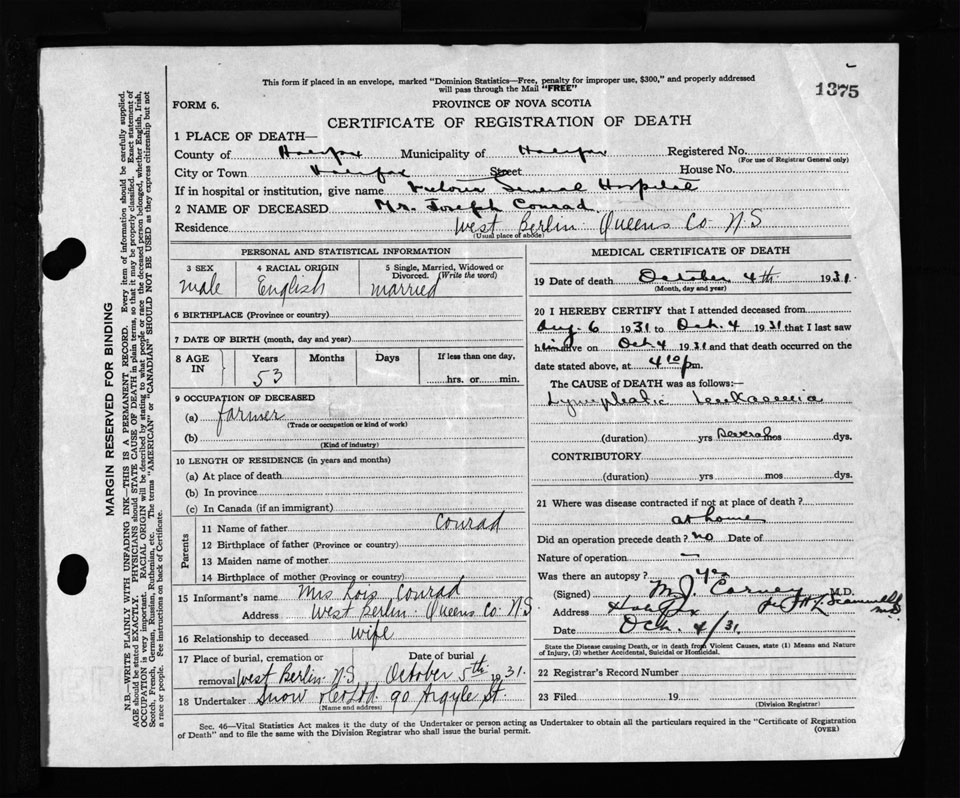 This form if placed in an envelope, marked "Dominion Statistics—Free, penalty for improper use, $300," and properly addressed
will pass through the Mail "FREE"
1375
FORM 6.
PROVINCE OF NOVA SCOTIA
CERTIFICATE OF REGISTRATION OF DEATH
1 PLACE OF DEATH—
County of Halifax Municipality of Halifax Registered No.
(For use of Registrar General only)
City or Town Halifax Street House No.
If in hospital or institution, give name Victoria General Hospital
2 NAME OF DECEASED Mr. Joseph Conrad
Residence West Berlin Queens Co N.S
(Usual place of abode)
PERSONAL AND STATISTICAL INFORMATION
3 SEX male
4 RACIAL ORIGIN English
5 Single, Married, Widowed or
Divorced. (Write the word)
married
6 BIRTHPLACE (Province or country)
7 DATE OF BIRTH (month, day and year)
8 AGE IN Years 53 Months Days If less than one day,
hrs. or min.
9 OCCUPATION OF DECEASED
(a) farmer
(Trade or occupation or kind of work)
(b)
(Kind of industry)
10 LENGTH OF RESIDENCE (in years and months)
(a) At place of death
(b) In province
(c) In Canada (if an immigrant)
Parents
11 Name of father Conrad
12 Birthplace of father (Province or country)
13 Maiden name of mother
14 Birthplace of mother (Province or country)
15 Informant's name Mrs Lois Conrad
Address West Berlin Queens Co N.S
16 Relationship to deceased wife
17 Place of burial, cremation or
removal West Berlin N.S.
Date of burial
October 5th 1931.
18 Undertaker Snow & Co Ltd. 90 Argyle St.
(Name and address)
MEDICAL CERTIFICATE OF DEATH
19 Date of death October 4th 1931.
(Month, day and year)
20 I HEREBY CERTIFY that I attended deceased from
Aug. 6 1931 to Oct. 4 1931 that I last saw
him alive on Oct 4 1931 and that death occurred on the
date stated above, at 4 10 p m.
The CAUSE of DEATH was as follows:—
Lymphatic Leukaemia
(duration) yrs several mos dys.
CONTRIBUTORY
(duration) yrs mos dys.
21 Where was disease contracted if not at place of death?
at home
Did an operation precede death? no Date of
Nature of operation —
Was there an autopsy? yes
(Signed) M. J. Carney M.D.
Address Halifax
Date Oct. 4/31.
State the Disease causing Death, or in death from Violent Causes, state (1) Means and Nature
of Injury, (2) whether Accidental, Suicidal or Homicidal.
22 Registrar's Record Number
23 Filed 19
(Division Registrar)
Sec. 46—Vital Statistics Act makes it the duty of the Undertaker or person acting as Undertaker to obtain all the particulars required in the "Certificate of Registration
of Death" and to file the same with the Division Registrar who shall issue the burial permit.
(OVER)
MARGIN RESERVED FOR BINDING
N.B.—WRITE PLAINLY WITH UNFADING INK—THIS IS A PERMANENT RECORD. Every item of information should be carefully supplied.
AGE should be stated EXACTLY. PHYSICIANS should STATE CAUSE OF DEATH in plain terms, so that it may be properly classified. Exact statement of
OCCUPATION is very important. RACIAL ORIGIN will be described by stating to what people or race the deceased person belonged, whether English, Irish,
Scotch, French, German, Russian, Ruthenian, etc. The terms "AMERICAN" or "CANADIAN" SHOULD NOT BE USED as they express citizenship but not
a race or people. See instructions on back of Certificate.